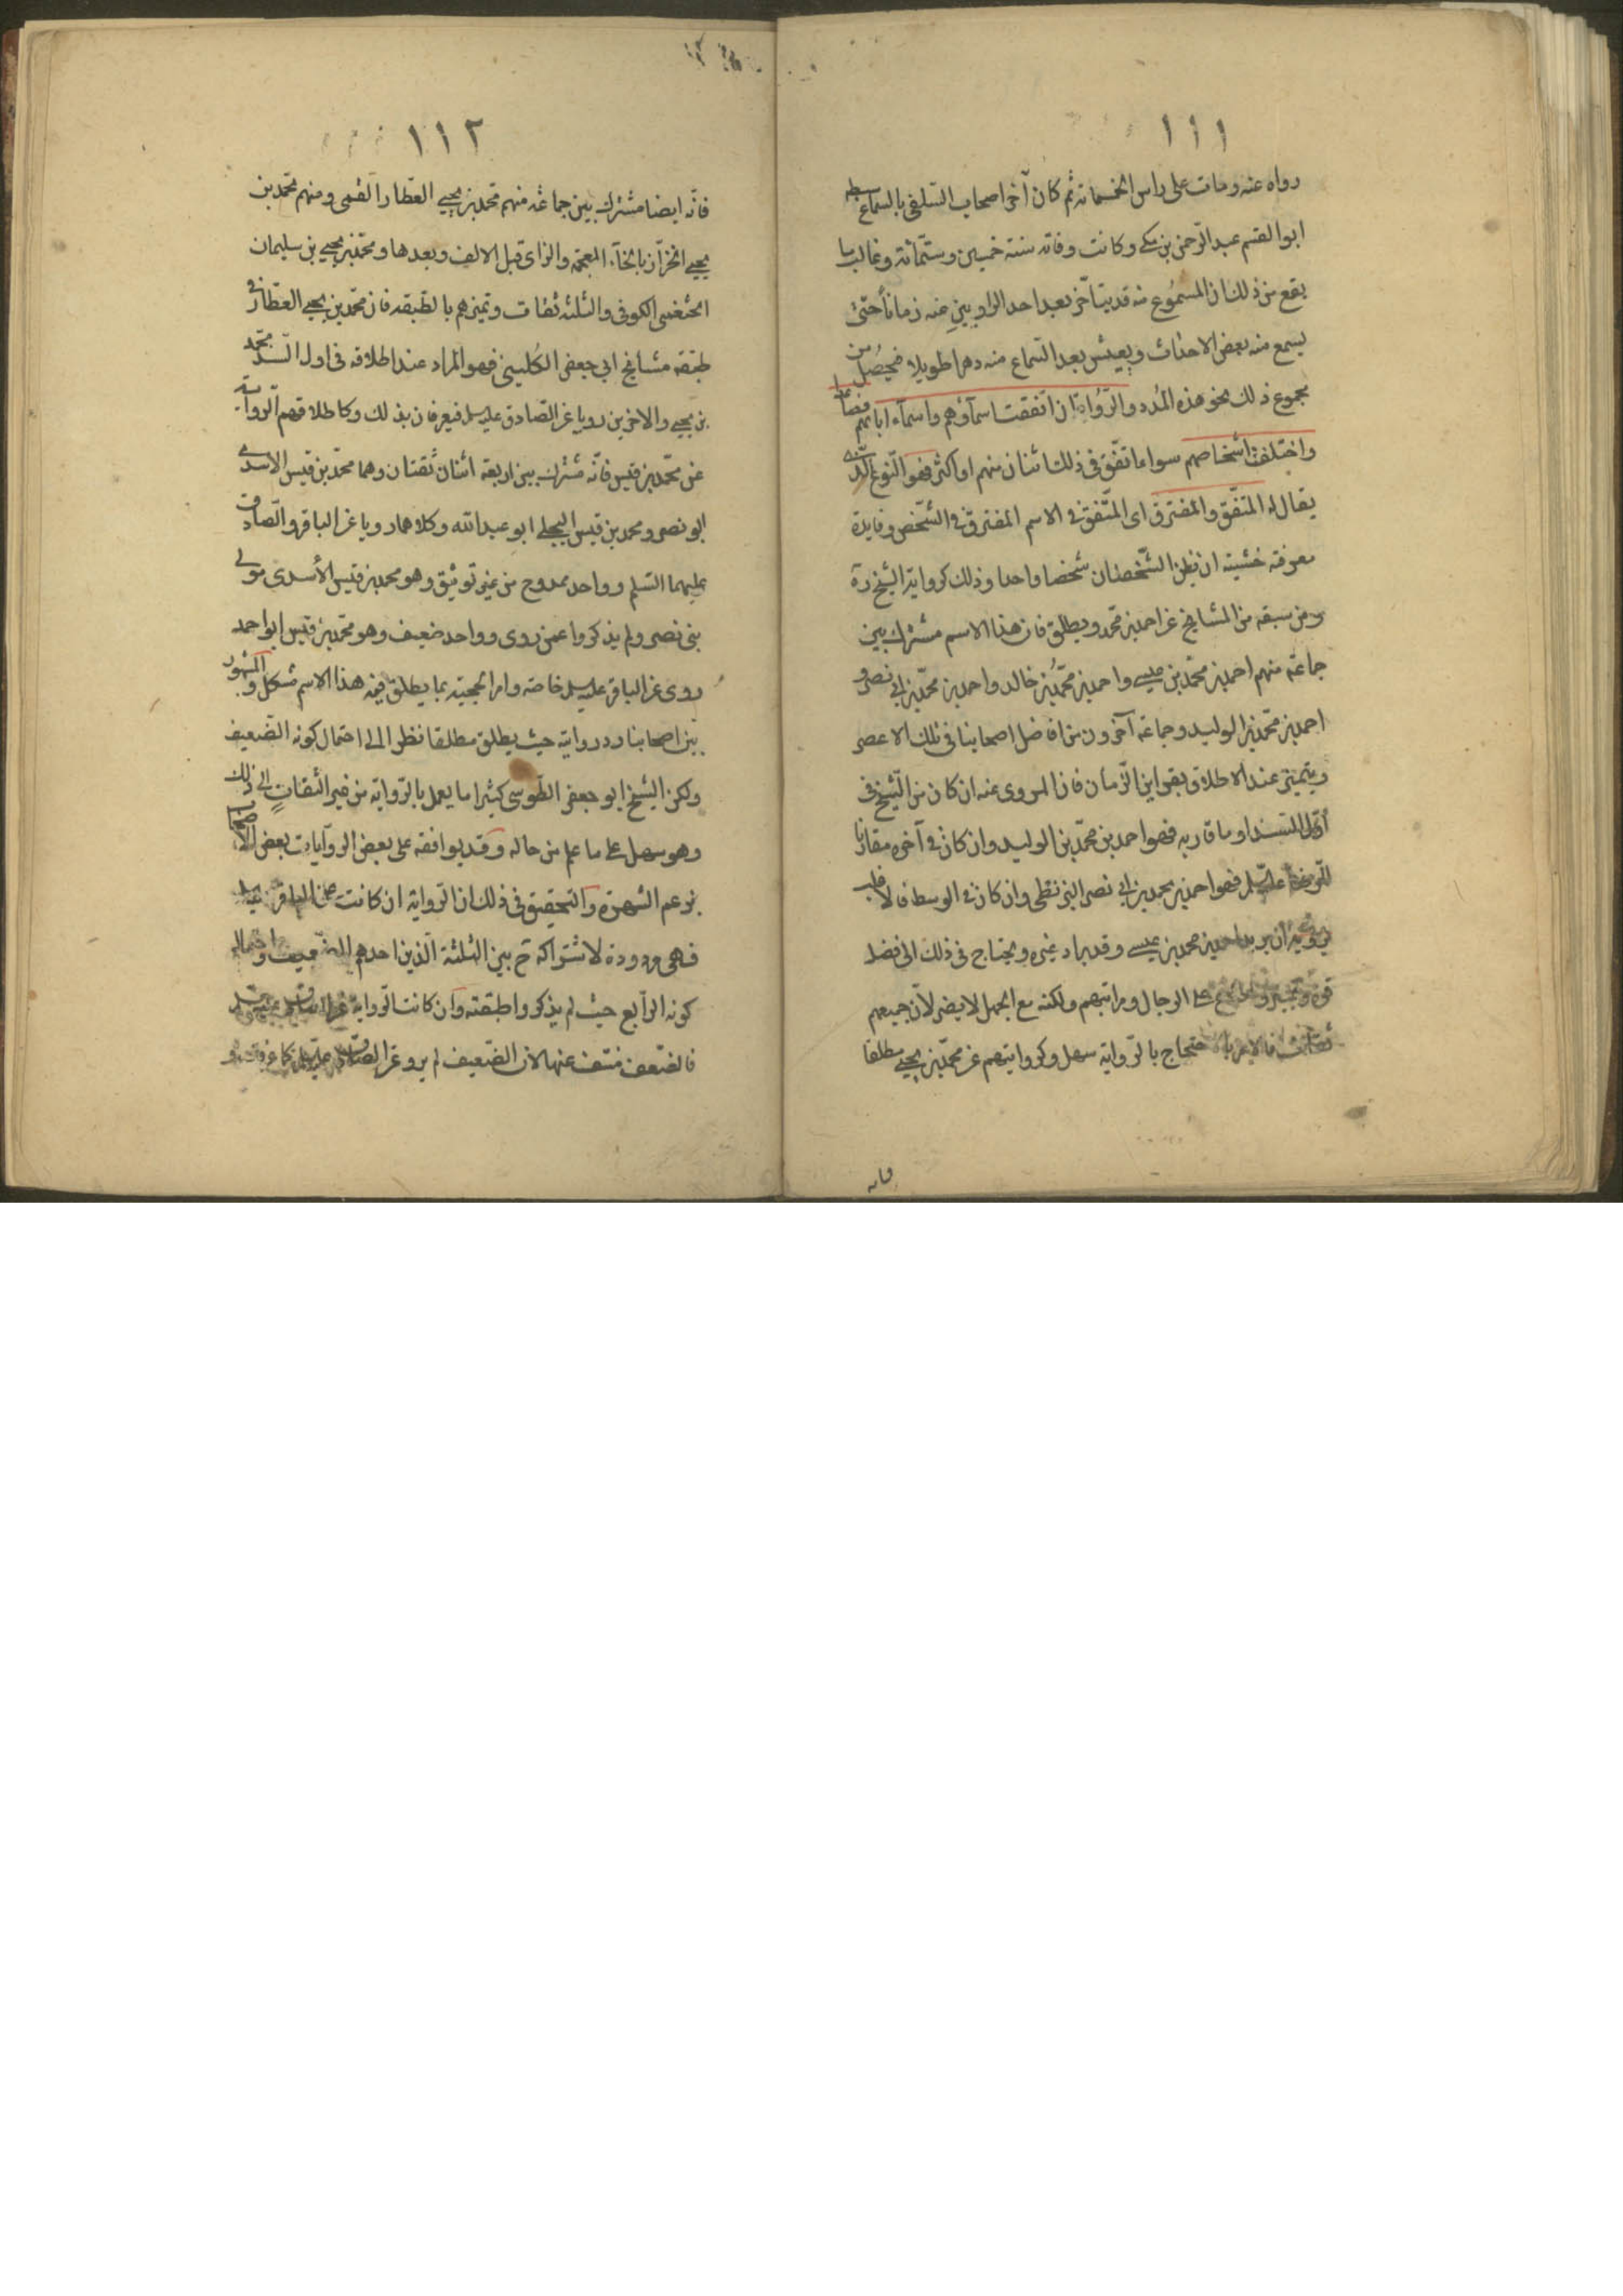 ١١١
رواه عنه ومات على راس الخمسمائة ثم كان آخر اصحاب السلفى بالسماع سبطه
ابو القسم عبد الرحمن بن مكى وكانت وفاته سنة خمسين وستمائة وغالب ما
يقع من ذلك ان المسموع منه قد يتأخر بعد احد الراويين عنه زمانا حتى
يسمع منه بعض الاحداث ويعيش بعد السماع منه دهرا طويلا فيحصل من
مجموع ذلك نحو هذه المدد والرواة ان اتفقت اسماؤهم واسماء ابائهم فصاعدا
واختلفت اشخاصهم سواء اتفق فى ذلك اثنان منهم او اكثر فهو النوع الذى
يقال له المتفق والمفترق اى المتفق فى الاسم المفترق فى الشخص وفايدة
معرفته خشية ان يظن الشخصان شخصا واحدا وذلك كرواية الشيخ ره
ومن سبقه من المشايخ عن احمد بن محمد ويطلق فان هذا الاسم مشترك بين
جماعة منهم احمد بن محمد بن عيسى واحمد بن محمد بن خالد واحمد بن محمد بن ابى نصر و
احمد بن محمد بن الوليد وجماعة آخرون من افاضل اصحابنا فى تلك الاعصر
ويتميز عند الاطلاق بقراين الزمان فان المروى عنه ان كان من الشيخ فى
اول السند او ما قاربه فهو احمد بن محمد بن الوليد وان كان فى آخره مقارنا
للرضا عليه السلم فهو احمد بن محمد بن ابى نصر البزنطى وان كان فى الوسط فالاغلب
ان يريد احمد بن محمد بن عيسى وقد يراد غيره ويحتاج فى ذلك الى فضل
قوة وتمييز واطلاع على الرجال ومراتبهم ولكنه مع الجهل لا يضر لان جميعهم
ثقات فالامر بالاحتجاج بالرواية سهل وكروايتهم عن محمد بن يحيى مطلقا
فانه
١١٢
فانه ايضا مشترك بين جماعة منهم محمد بن يحيى العطار القمى ومنهم محمد بن
يحيى الخزاز بالخاء المعجمة والزاى قبل الالف وبعدها ومحمد بن يحيى بن سليمان
الخثعمى الكوفى والثلثة ثقات وتميزهم بالطبقه فان محمد بن يحيى العطار فى
طبقة مشايخ ابى جعفر الكلينى فهو المراد عند اطلاقه فى اول السند محمد
بن يحيى والاخرين رويا عن الصادق عليه السلم فيعرفان بذلك وكاطلاقهم الرواية
عن محمد بن قيس فانه مشترك بين اربعة اثنان ثقتان وهما محمد بن قيس الاسدى
ابو نصر ومحمد بن قيس البجلى ابو عبد الله وكلاهما رويا عن الباقر والصادق
عليهما السلم وواحد ممدوح من غير توثيق وهو محمد بن قيس الأسدى مولى
بنى نصر ولم يذكروا عمن روى وواحد ضعيف وهو محمد بن قيس ابو احمد
روى عن الباقر عليه السلم خاصة وامر الحجية بما يطلق فيه هذا الاسم مشكل والمشهور
بين اصحابنا رد روايته حيث يطلق مطلقا نظرا الى احتمال كونه الضعيف
ولكن الشيخ ابو جعفر الطوسى كثيرا ما يعمل بالرواية من غير التفات الى ذلك
وهو سهل على ما علم من حاله وقد يوافقه على بعض الروايات بعض الاصحاب
بزعم الشهرة والتحقيق فى ذلك ان الرواية ان كانت عن الباقر عليه السلم
فهى مردودة لاشتراكه ح بين الثلثة الذين احدهم الضعيف واحتمال
كونه الرابع حيث لم يذكروا طبقته وان كانت الرواية عن الصادق عليه السلم
فالضعف منتف عنها لان الضعيف لم يرو عن الصادق عليه السلم كما عرفت و